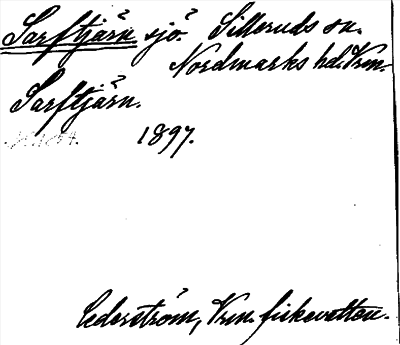 Sarftjärn sjö. Silleruds sn.
Nordmarks hd. Vrm.
Sarftjärn.
1897.
Cederström, Vrm. fiskevatten.